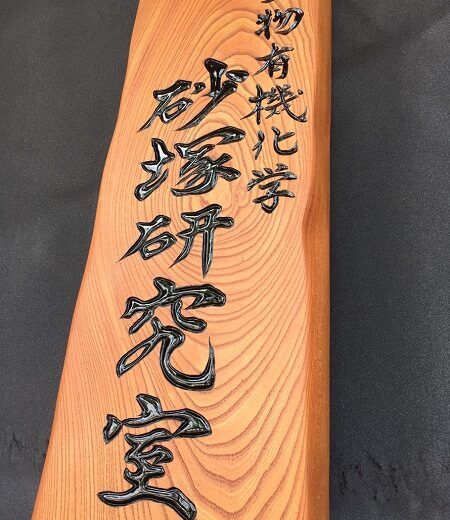 物有機化学
砂塚研究室